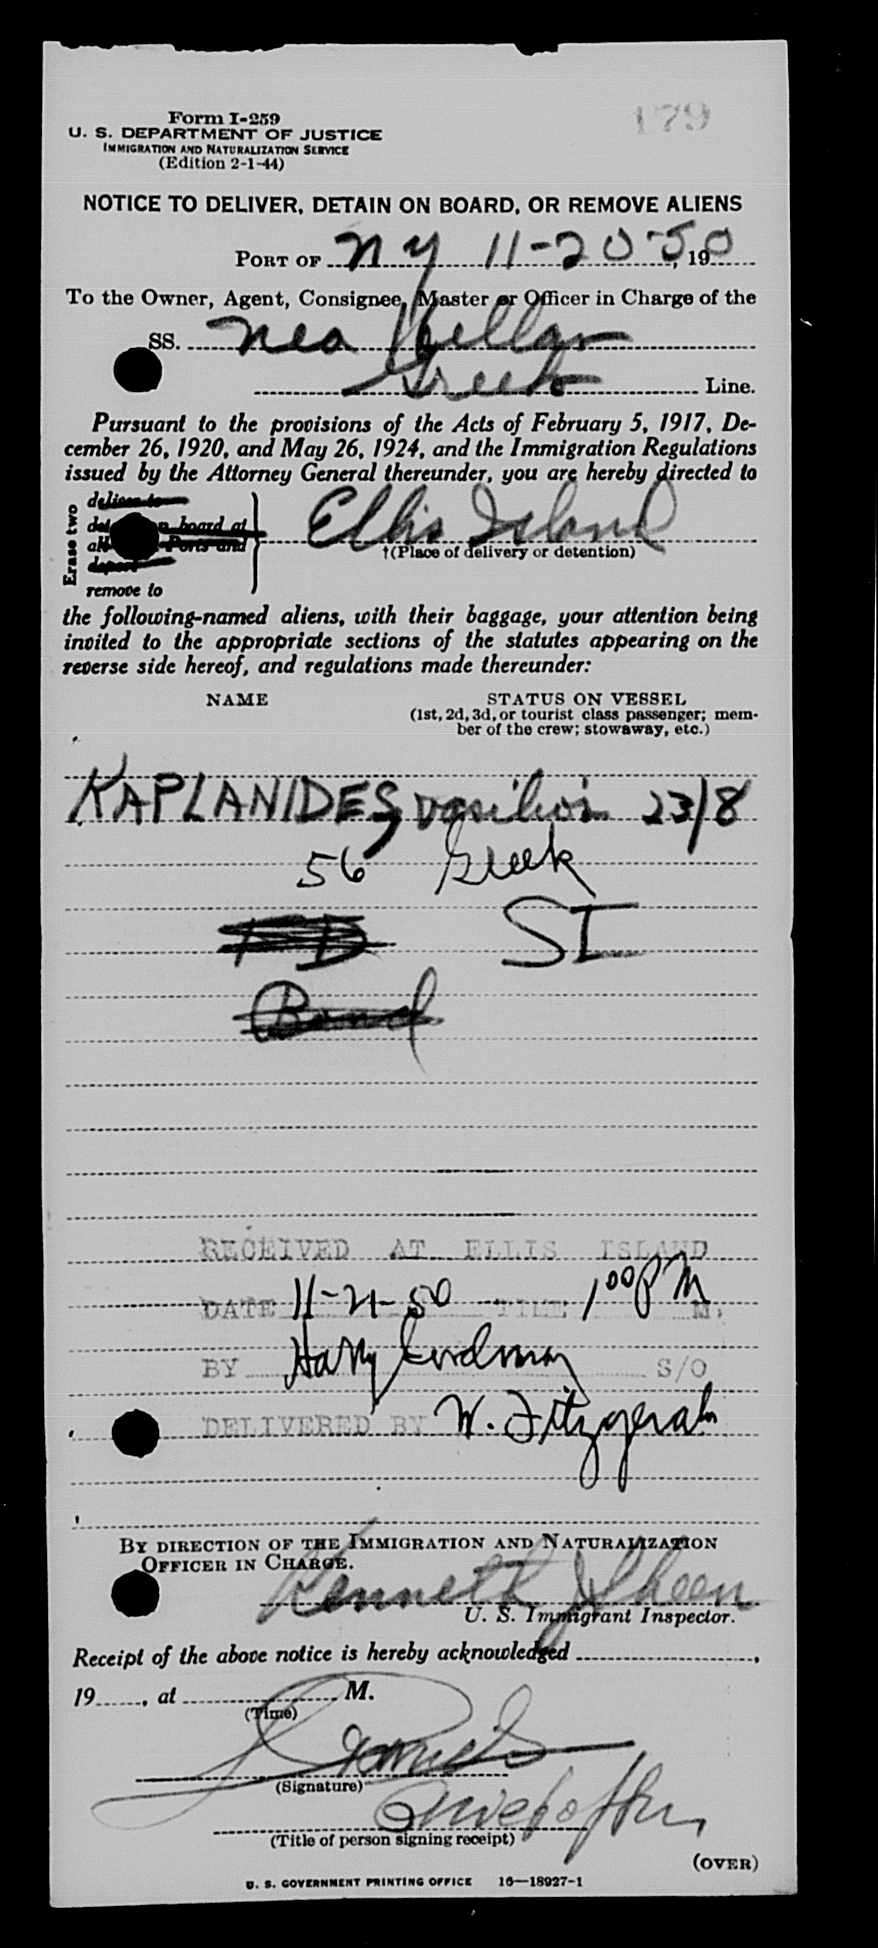 179
Form I-259
U. S. DEPARTMENT OF JUSTICE
IMMIGRATION AND NATURALIZATION SERVICE
(Edition 2-1-44)
NOTICE TO DELIVER, DETAIN ON BOARD, OR REMOVE ALIENS
PORT OF NY 11-20-50, 190
To the Owner, Agent, Consignee, Master or Officer in Charge of the
SS. Nea Hellas
Greek Line.
Pursuant to the provisions of the Acts of February 5, 1917, De-
cember 26, 1920, and May 26, 1924, and the Immigration Regulations
issued by the Attorney General thereunder, you are hereby directed to
Erase two
deliver to
on board at
Ports and
deport
remove to
Ellis Island
†(Place of delivery or detention)
the following-named aliens, with their baggage, your attention being
invited to the appropriate sections of the statutes appearing on the
reverse side hereof, and regulations made thereunder:
NAME STATUS ON VESSEL
(1st, 2d, 3d, or tourist class passenger; mem-
ber of the crew; stowaway, etc.)
KAPLANIDES, Vasilios 23/8
56 Greek
SI
Bond
RECEIVED AT ELLIS ISLAND
DATE 11-21-50 TIME 1 00 PM M.
BY Harry S/O
DELIVERED BY W. Fitzgerald
BY DIRECTION OF THE IMMIGRATION AND NATURALIZATION
OFFICER IN CHARGE.
Kenneth J Sheen
U. S. Immigrant Inspector.
Receipt of the above notice is hereby acknowledged ,
19 , at M.
(Time)
(Signature)
(Title of person signing receipt)
(OVER)
U. S. GOVERNMENT PRINTING OFFICE 16—18927-1